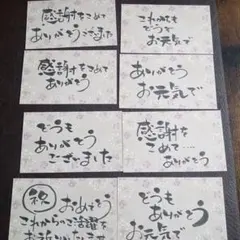 感謝をこめて
ありがとうございました
これからも
どうぞ
お元気で
感謝をこめて
ありがとう
ありがとう
お元気で
どうも
ありがとう
ございました
感謝を
こめて…
ありがとう
祝
おめでとう
これからのご活躍を
お祈りいたします
どうも
ありがとう
お元気で